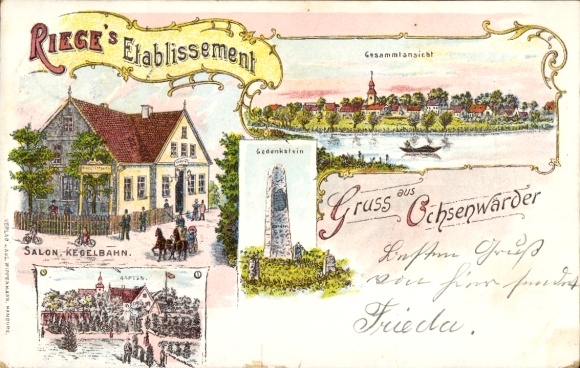 RIEGE'S
Etablissement
Gesammtansicht
Gedenkstein
Gruss aus
Ochsenwärder
SALON, KEGELBAHN.
GARTEN.
Besten Gruß
von hier sendet
Frieda.